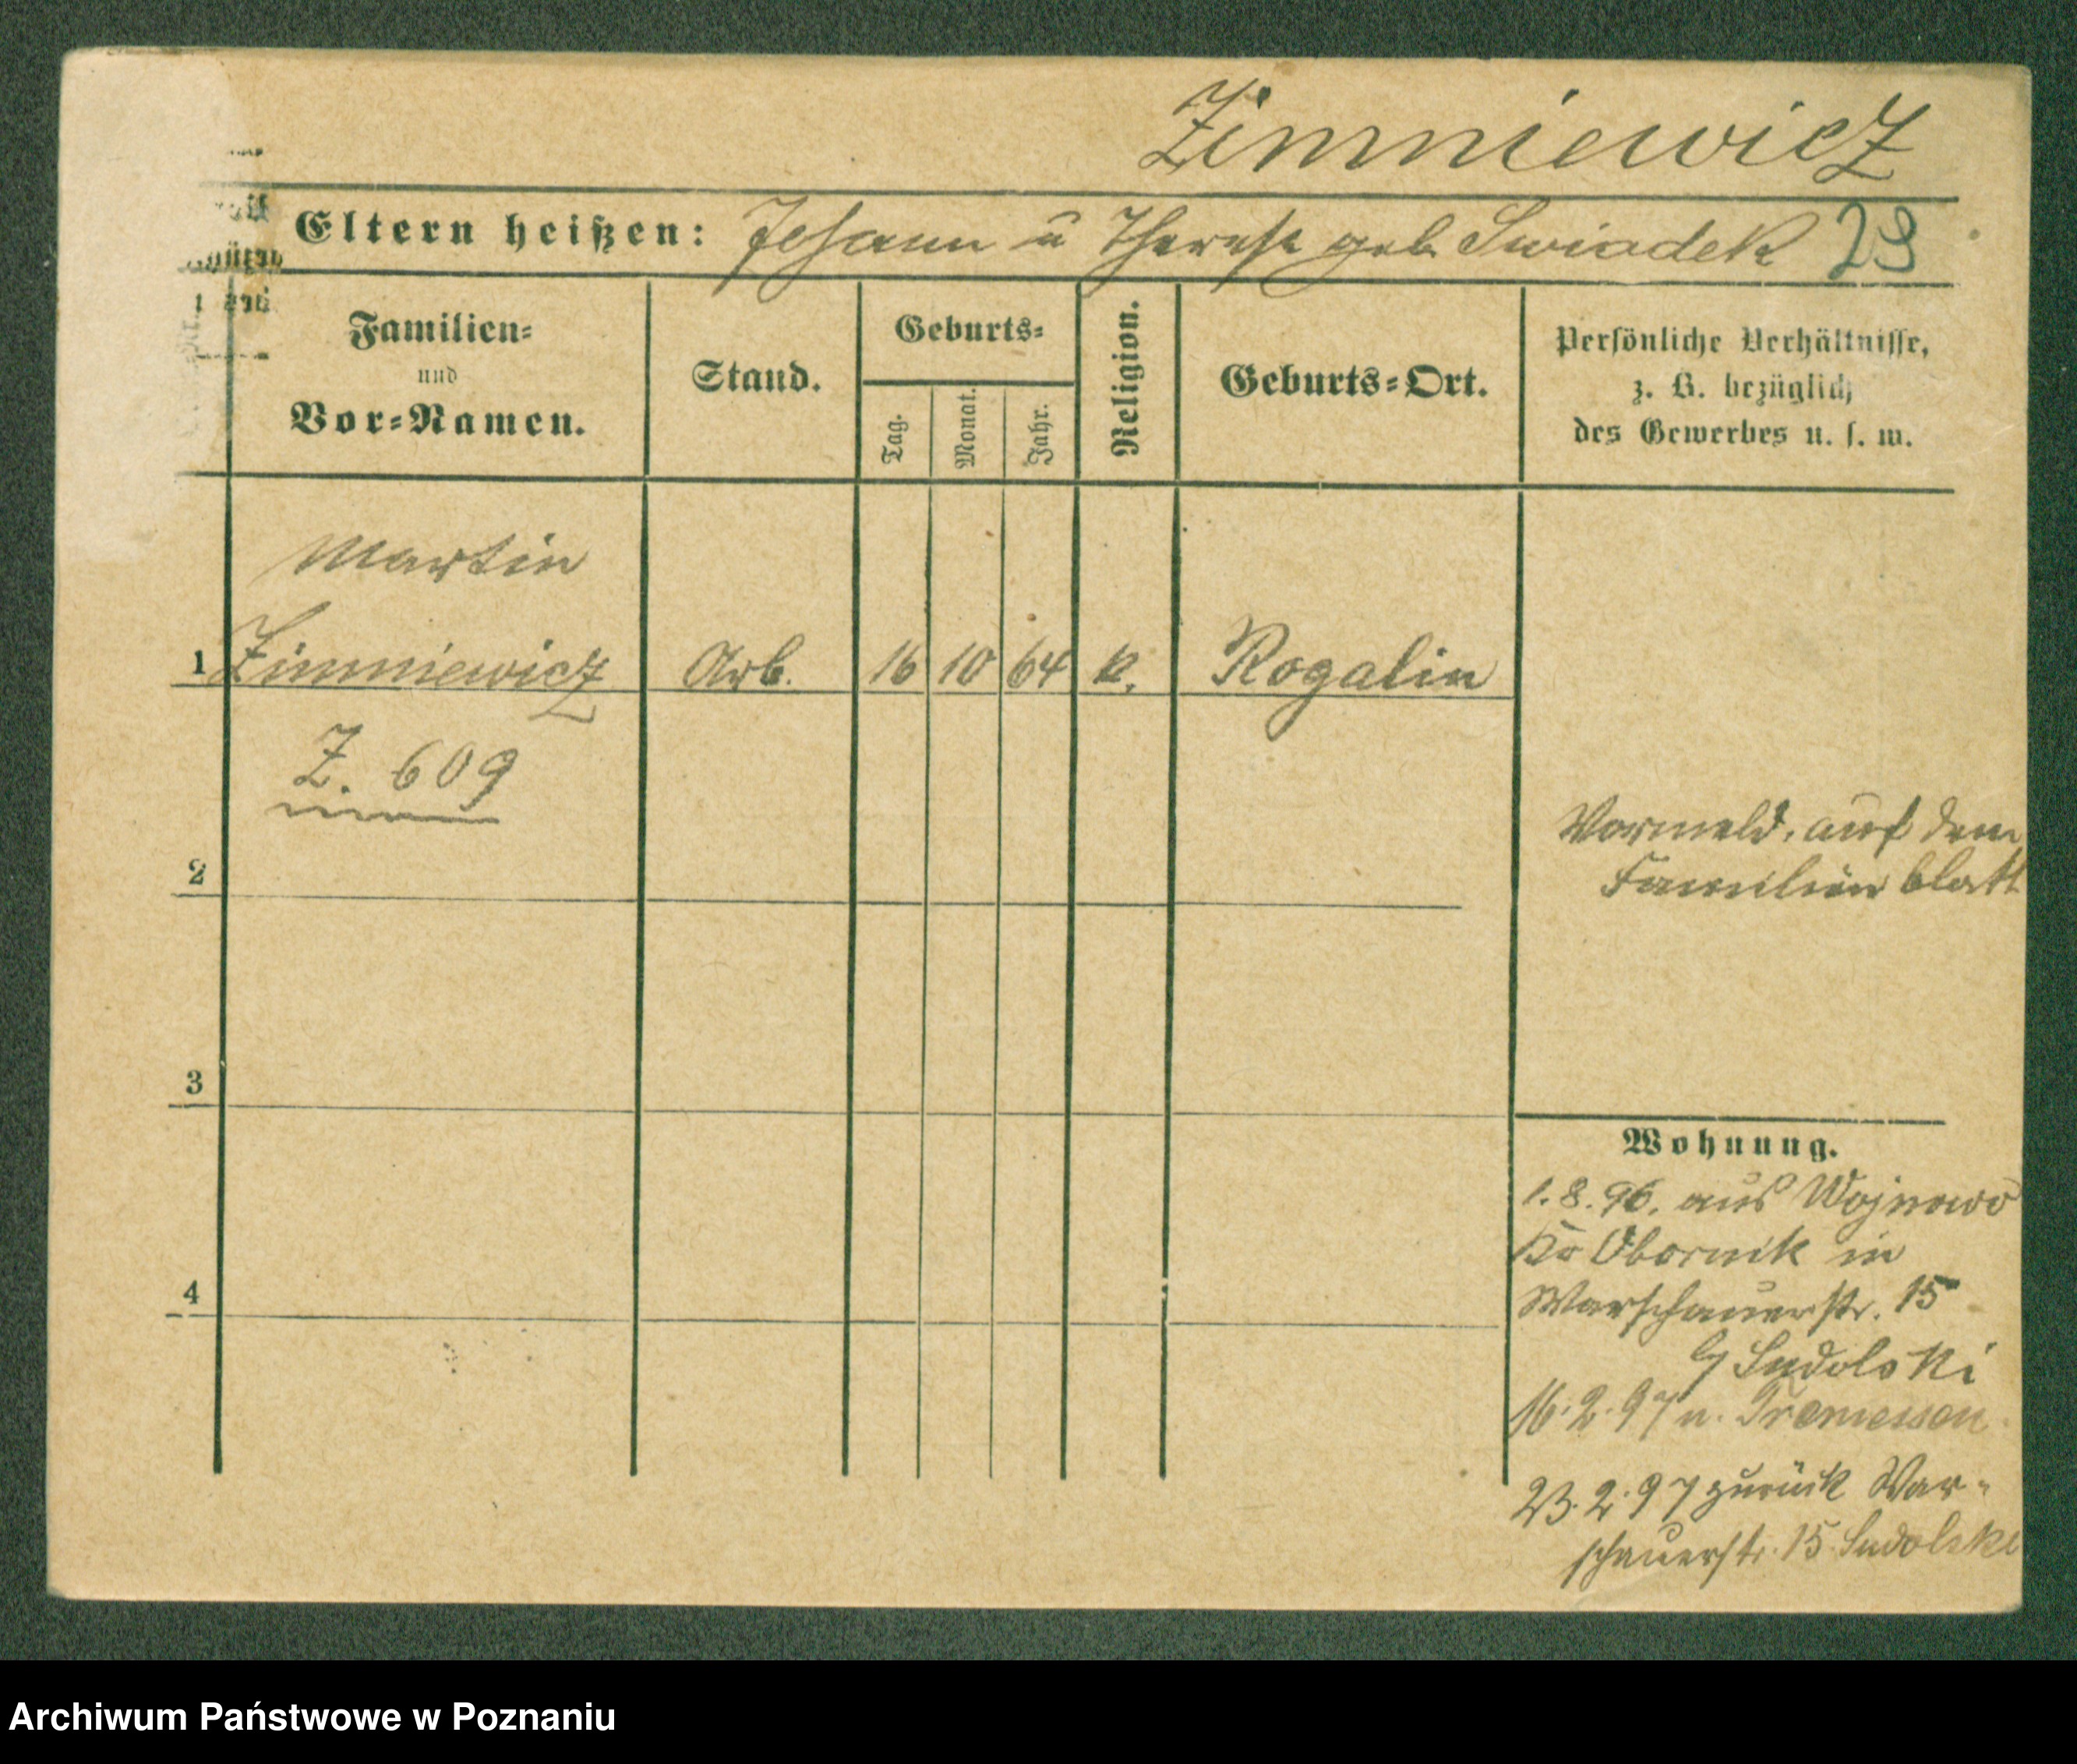 Zimniewicz
Eltern heißen: Johann u Therese geb. Swiadek 29
Familien-
und
Vor-Namen.
Stand.
Geburts-
Tag.
Monat.
Jahr.
Religion.
Geburts-Ort.
Persönliche Verhältnisse,
z. B. bezüglich
des Gewerbes u. s. w.
Martin
1 Zimniewicz Arb. 16 10 64 k. Rogalin
Z. 609
Vormeld. auf dem
Familienblatt
2
3
4
Wohnung.
1.8.96. aus Wojnowo
Kr Obornik in
Warschauerstr. 15
16.2.97 n. Tremessen
23.2.97 zurück War-
schauerstr. 15
Archiwum Państwowe w Poznaniu